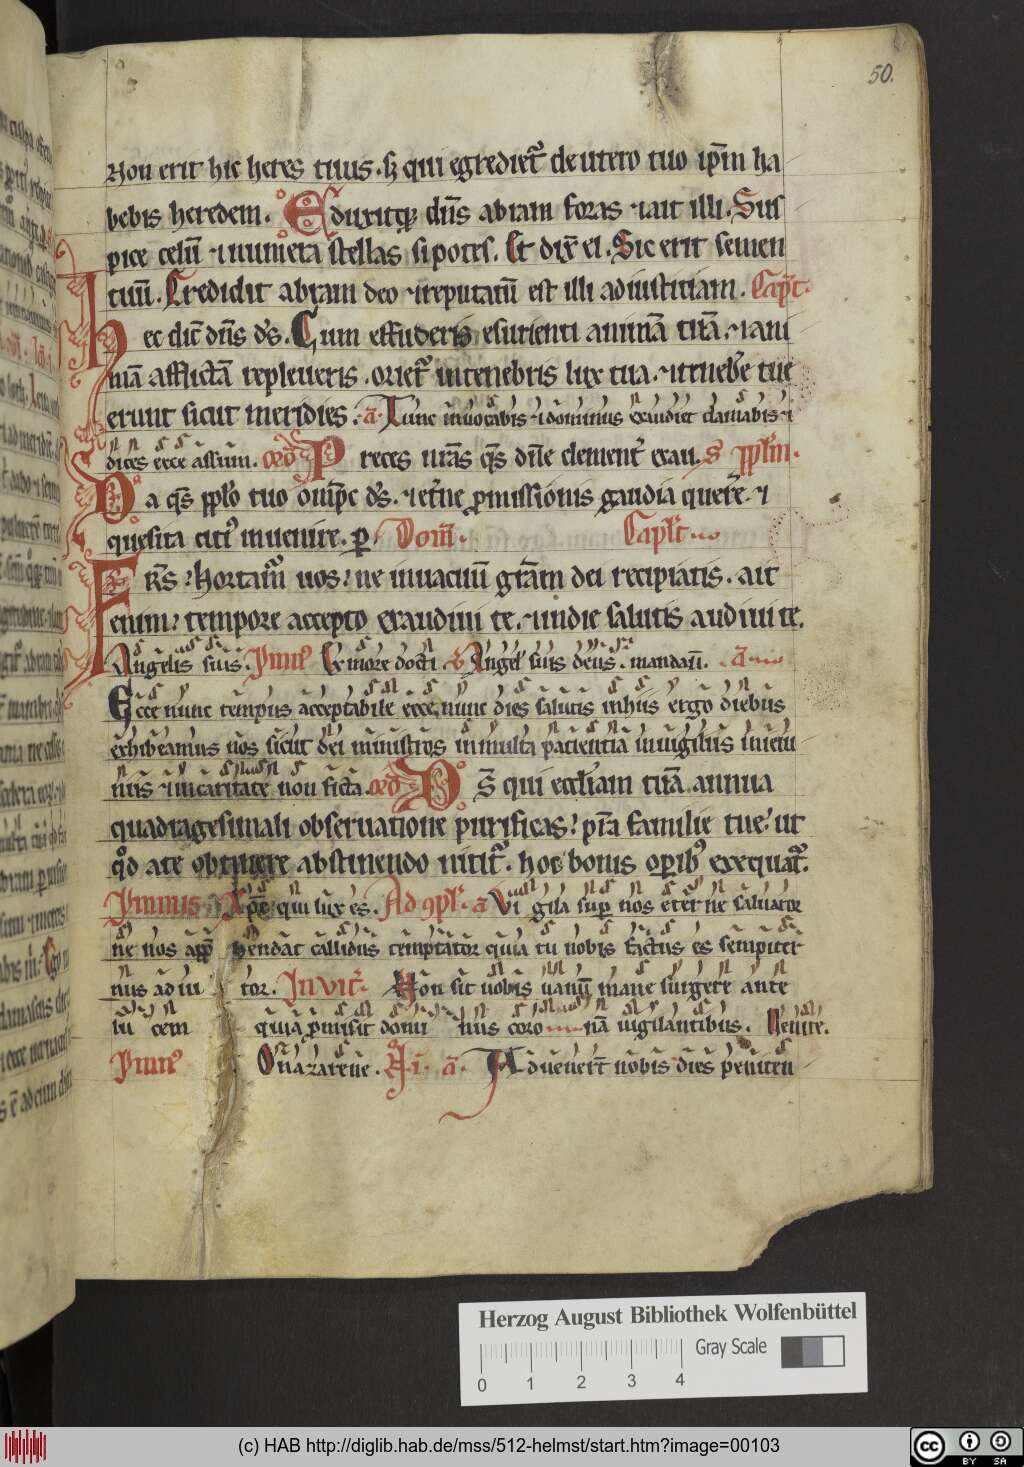 50.
Non erit hic heres tuus. sꝫ qui egrediet̉ de utero tuo ip̄m ha
bebis heredem. Eduxitqꝫ dn̄s abram foras ⁊ait illi. Sus
pice celū ⁊numera stellas si potes. Et dix̄ ei. Sic erit semen
tuū. Credidit abram deo ⁊reputatū est illi ad iusticiam. Capl̄t.
hec dic̄ dn̄s d̄s. Cum effuderis esurienti animā tuā. ⁊ani
mā afflictā repleueris. oriet̉ in tenebris lux tua. ⁊tenebr̄e tue
erunt sicut meridies. a̅. Tunc inuocabis ⁊dominus exaudiet clamabis ⁊
dices ecce assum. or̄o Preces nr̄as qs̄ dn̄e clement̉ exau. S͛ pp̄lm.
Da qs̄ pp̄lo tuo om̄ips d̄s. ⁊et̉ne ꝓmissionis gaudia quer̉e. ⁊
quesita citi᷒ inuenire. ꝑ Dom̄. Capl̄t.
Fr̄s hortam̉ uos ne in uacuū gr̄am dei recipiatis. ait
enim tempore accepto exaudiui te. ⁊in die salutis audiui te.
Angelis suis. Ymn᷒ Ex more docti v̉ Angel̉ suis deus. mandau̅. a̅.
Ecce nunc tempus acceptabile ecce nunc dies salutis in hiis ergo diebus
exhibeamus nos sicut dei ministros in multa patientia in uigiliis in ieiu
niis ⁊in caritate non ficta. or̄o Ds̄ qui eccl̄iam tuā annua
quadragesimali obseruatione purificas p̄sta familie tue ut
qd̊ a te obtinere abstinendo nitit̉. hoc bonis oꝑib᷒ exequat̉.
Ymnus Xpē qui lux es. Ad ꝯpl̄. a̅ Vi gila sup̄ nos et̉ ne saluator
ne nos app̄ hendat callidus temptator quia tu nobis factus es sempiter
nus adiu tor. Invit̉. Non sit uobis uanū mane surgere ante
lu cem quia ꝓmisit domi nus coro nā uigilantibus. Venite.
Ymn᷒ O nazarene. A. i. a̅. Aduener̄t nobis dies peniten
Herzog August Bibliothek Wolfenbüttel
Gray Scale
0 1 2 3 4
(c) HAB http://diglib.hab.de/mss/512-helmst/start.htm?image=00103
cc BY SA